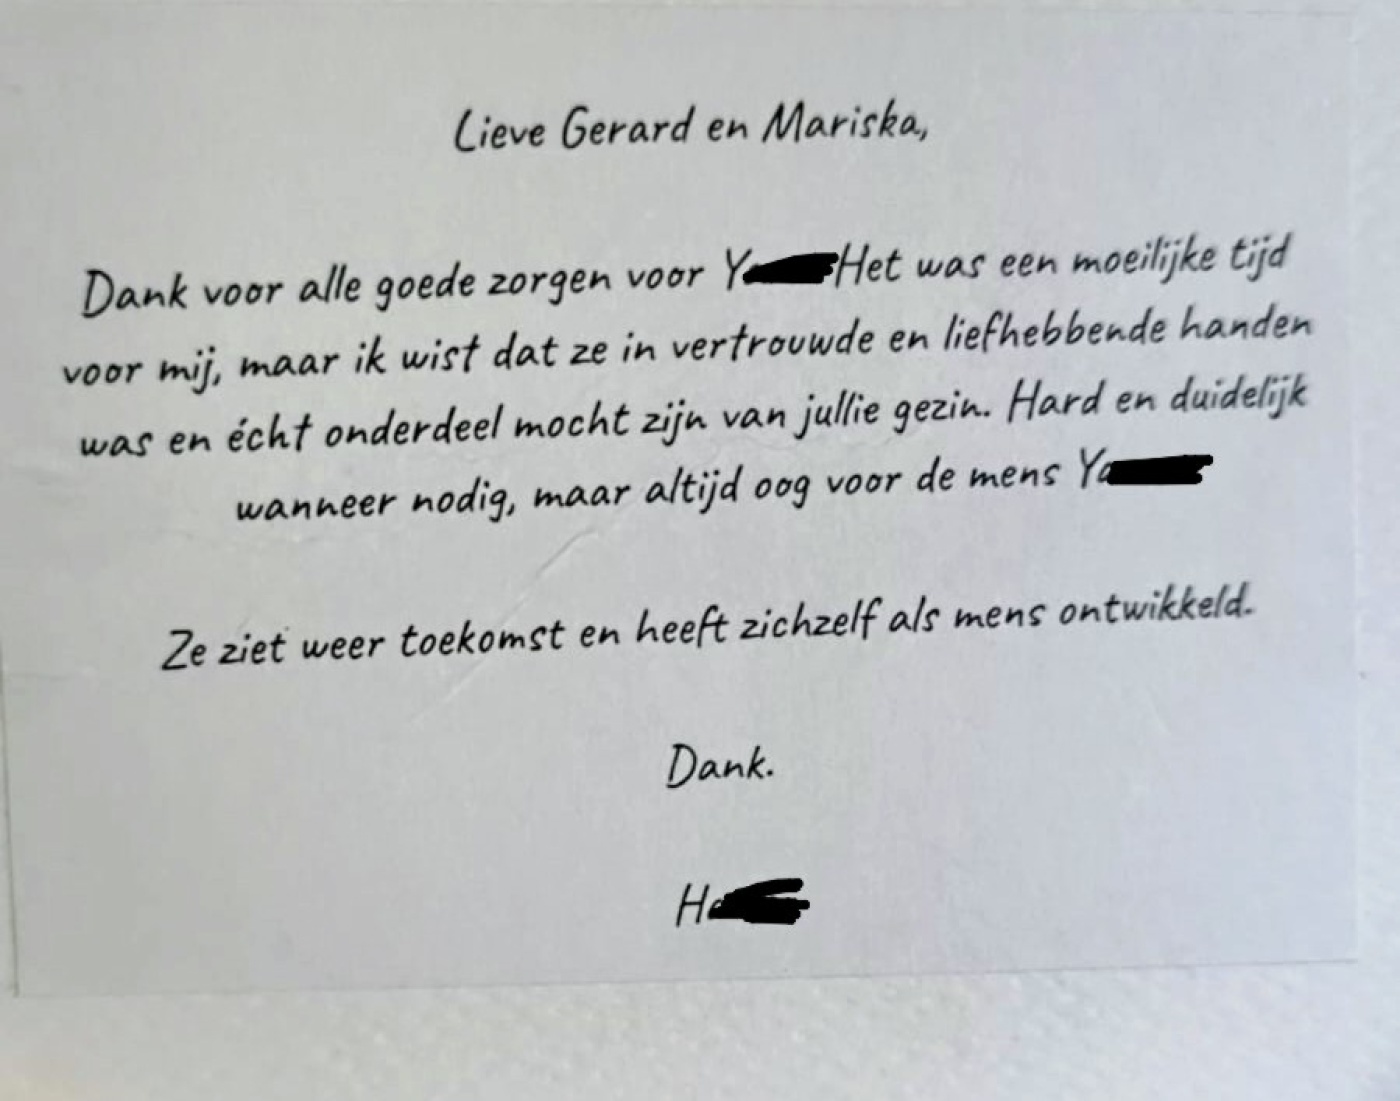 Lieve Gerard en Mariska,
Dank voor alle goede zorgen voor Het was een moeilijke tijd
voor mij, maar ik wist dat ze in vertrouwde en liefhebbende handen
was en écht onderdeel mocht zijn van jullie gezin. Hard en duidelijk
wanneer nodig, maar altijd oog voor de mens
Ze ziet weer toekomst en heeft zichzelf als mens ontwikkeld.
Dank.